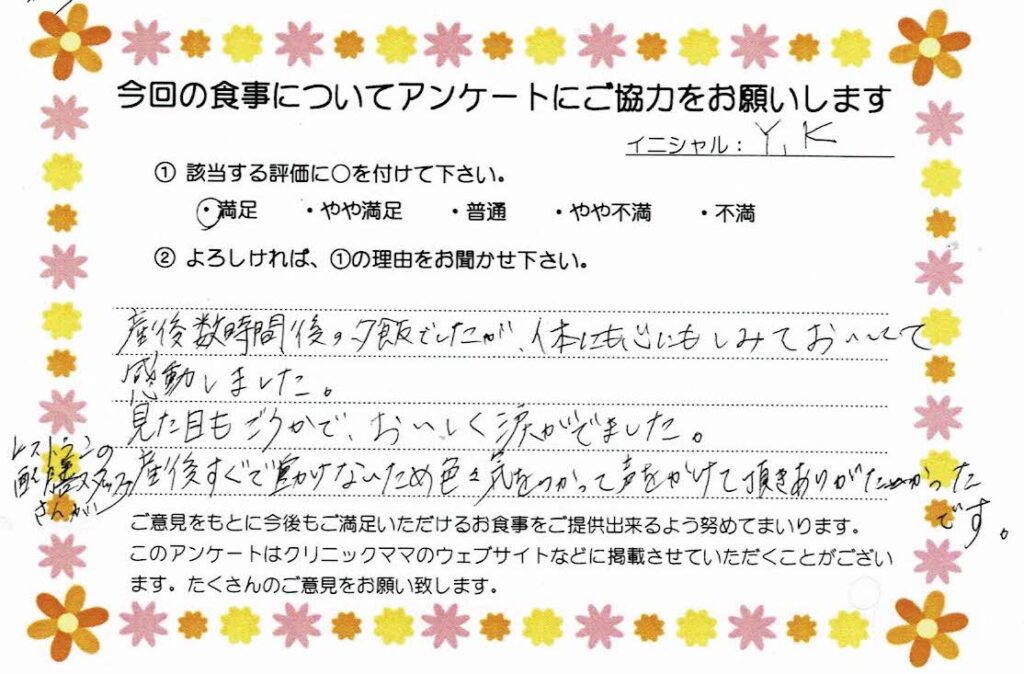 今回の食事についてアンケートにご協力をお願いします
イニシャル：Y,K
① 該当する評価に○を付けて下さい。
・満足 ・やや満足 ・普通 ・やや不満 ・不満
② よろしければ、①の理由をお聞かせ下さい。
産後数時間後の夕飯でしたが、体にも心にもしみておいしくて
感動しました。
見た目もごうかで、おいしく涙がでました。
レストランの
配膳スタッフ
さんが
産後すぐで動けないため色々気をつかって声をかけて頂きありがたかった
です。
ご意見をもとに今後もご満足いただけるお食事をご提供出来るよう努めてまいります。
このアンケートはクリニックママのウェブサイトなどに掲載させていただくことがござい
ます。たくさんのご意見をお願い致します。